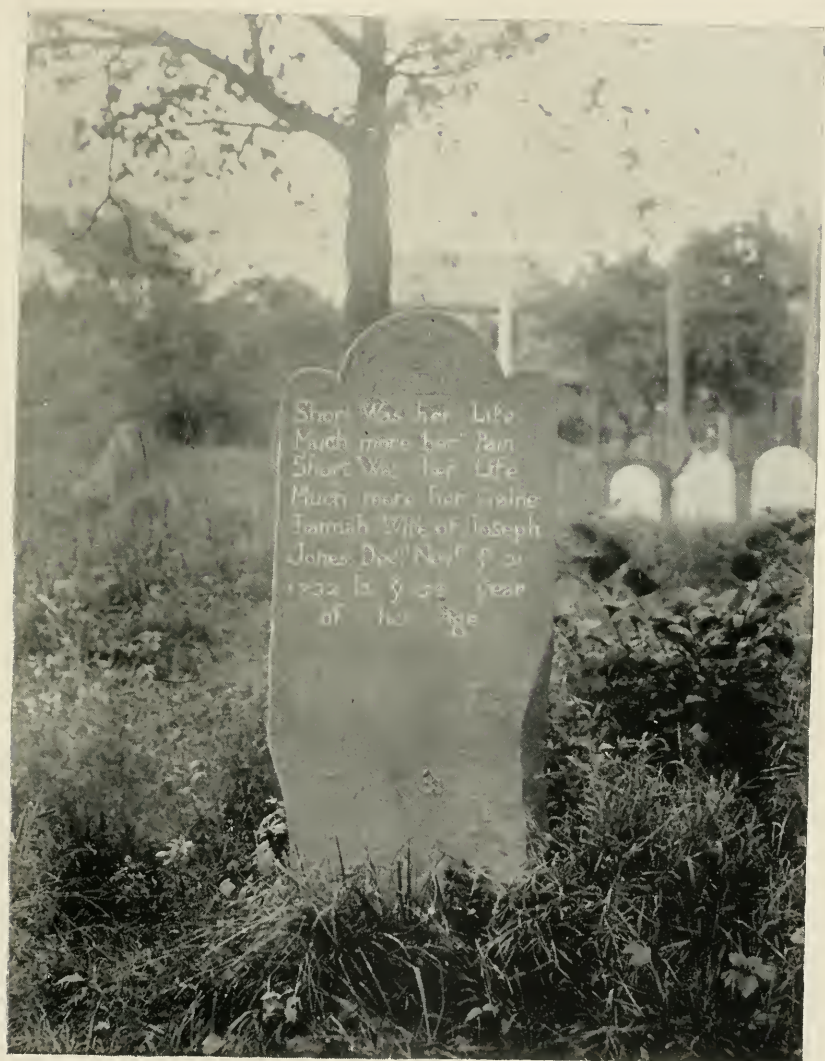 Short Was her Life
Much more her Pain
Short Was her Life
Much more her Gaine
Hannah Wife of Joseph
Jones Decd Novr ye 21
In ye year
of her age